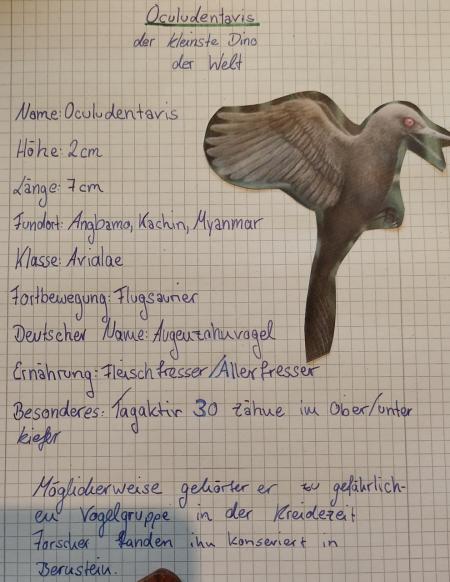 Oculudentavis
der kleinste Dino
der Welt
Name: Oculudentavis
Höhe: 2 cm
Länge: 7 cm
Fundort: Angbamo, Kachin, Myanmar
Klasse: Avialae
Fortbewegung: Flugsaurier
Deutscher Name: Augenzahnvogel
Ernährung: Fleischfresser/Allerfresser
Besonderes: Tagaktiv 30 zähne im Ober/unter
kiefer
Möglicherweise gehörter er zu gefährlich-
en Vogelgruppe in der Kreidezeit
Forscher fanden ihn konserviert in
Bernstein.